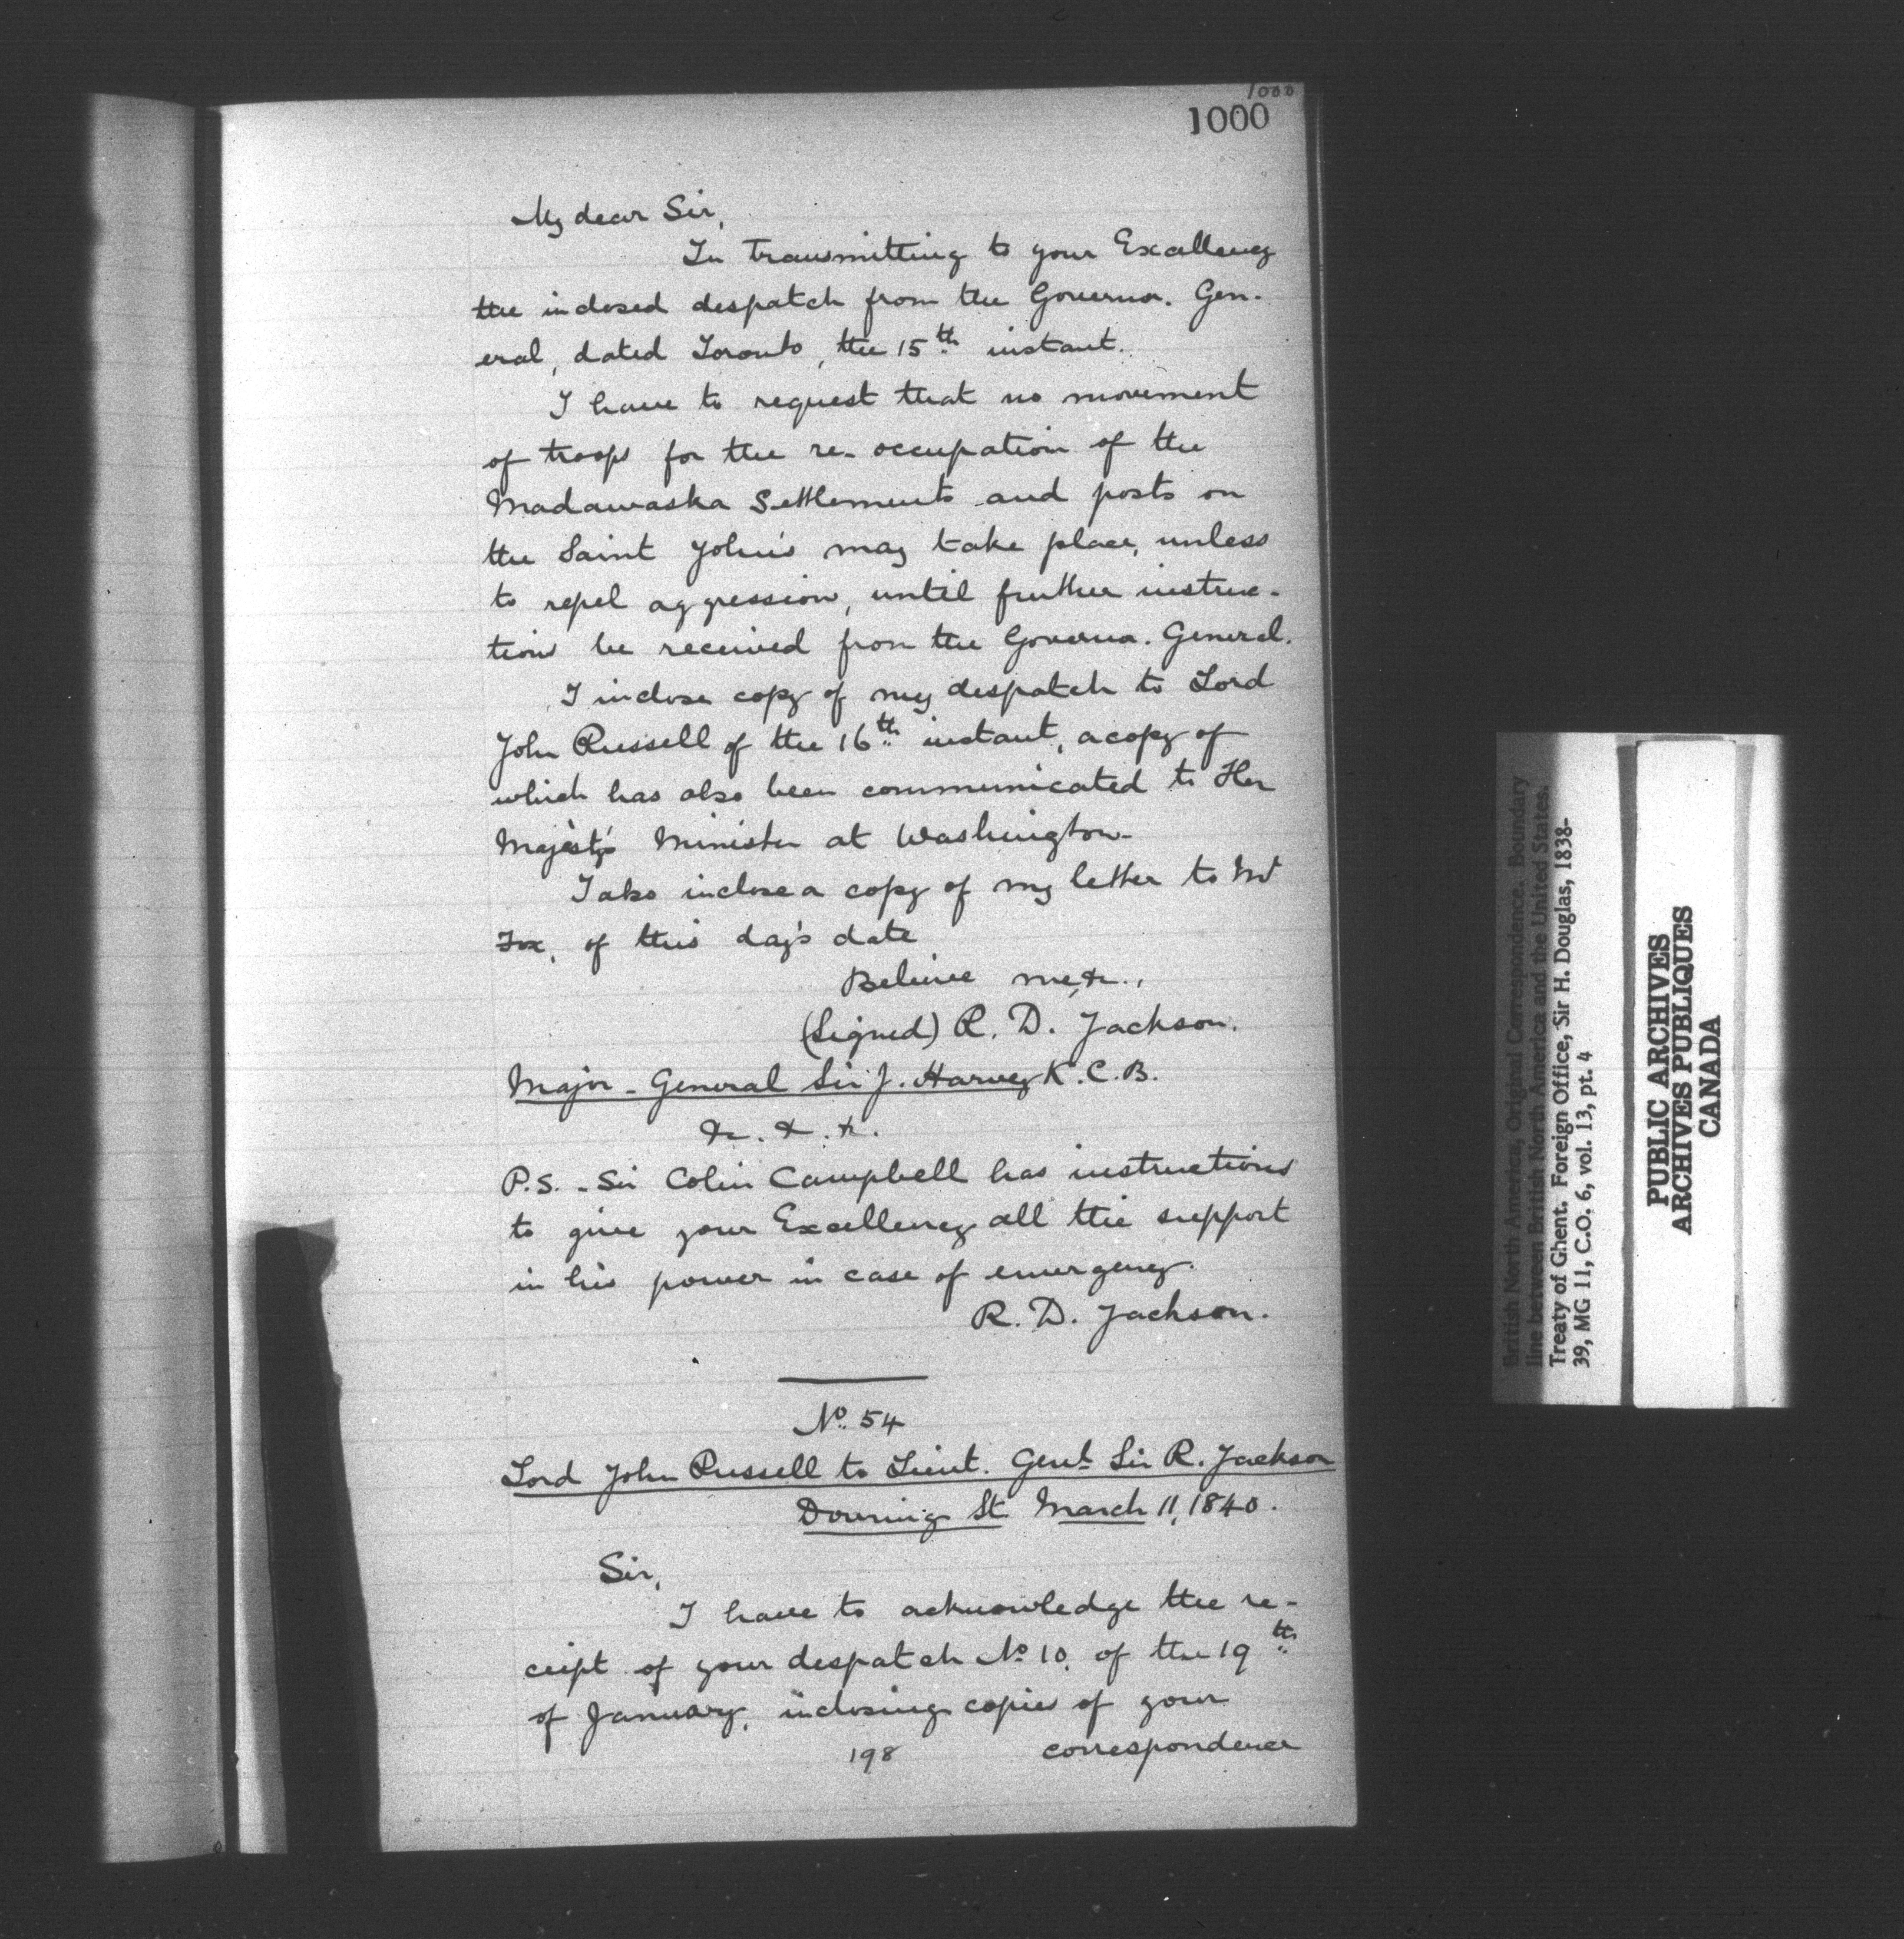 1000
1000
My dear Sir,
In transmitting to your Excellency
the inclosed despatch from the Governor. Gen-
eral, dated Toronto, the 15th instant.
I have to request that no movement
of troops for the re-occupation of the
Madawaska Settlements and posts on
the Saint John's may take place, unless
to repel aggression, until further instruc-
tions be received from the Governor. General.
I inclose copy of my despatch to Lord
John Russell of the 16th instant, a copy of
which has also been communicated to Her
Majesty's Minister at Washington.
I also inclose a copy of my letter to Mr
Fox, of this day's date
Believe me, &c.,
(Signed) R. D. Jackson.
Major-General Sir J. Harvey K.C.B.
&c. &. &.
P.S. - Sir Colin Campbell has instructions
to give your Excellency all the support
in his power in case of emergency.
R. D. Jackson.
No. 54
Lord John Russell to Lieut. Genl. Sir R. Jackson
Downing St March 11, 1840.
Sir,
I have to acknowledge the re-
ceipt of your despatch No 10, of the 19th
of January, inclosing copies of your
198 correspondence
British North America, Original Correspondence. Boundary
line between British North America and the United States.
Treaty of Ghent. Foreign Office, Sir H. Douglas, 1838-
39, MG 11, C.O. 6, vol. 13, pt. 4
PUBLIC ARCHIVES
ARCHIVES PUBLIQUES
CANADA